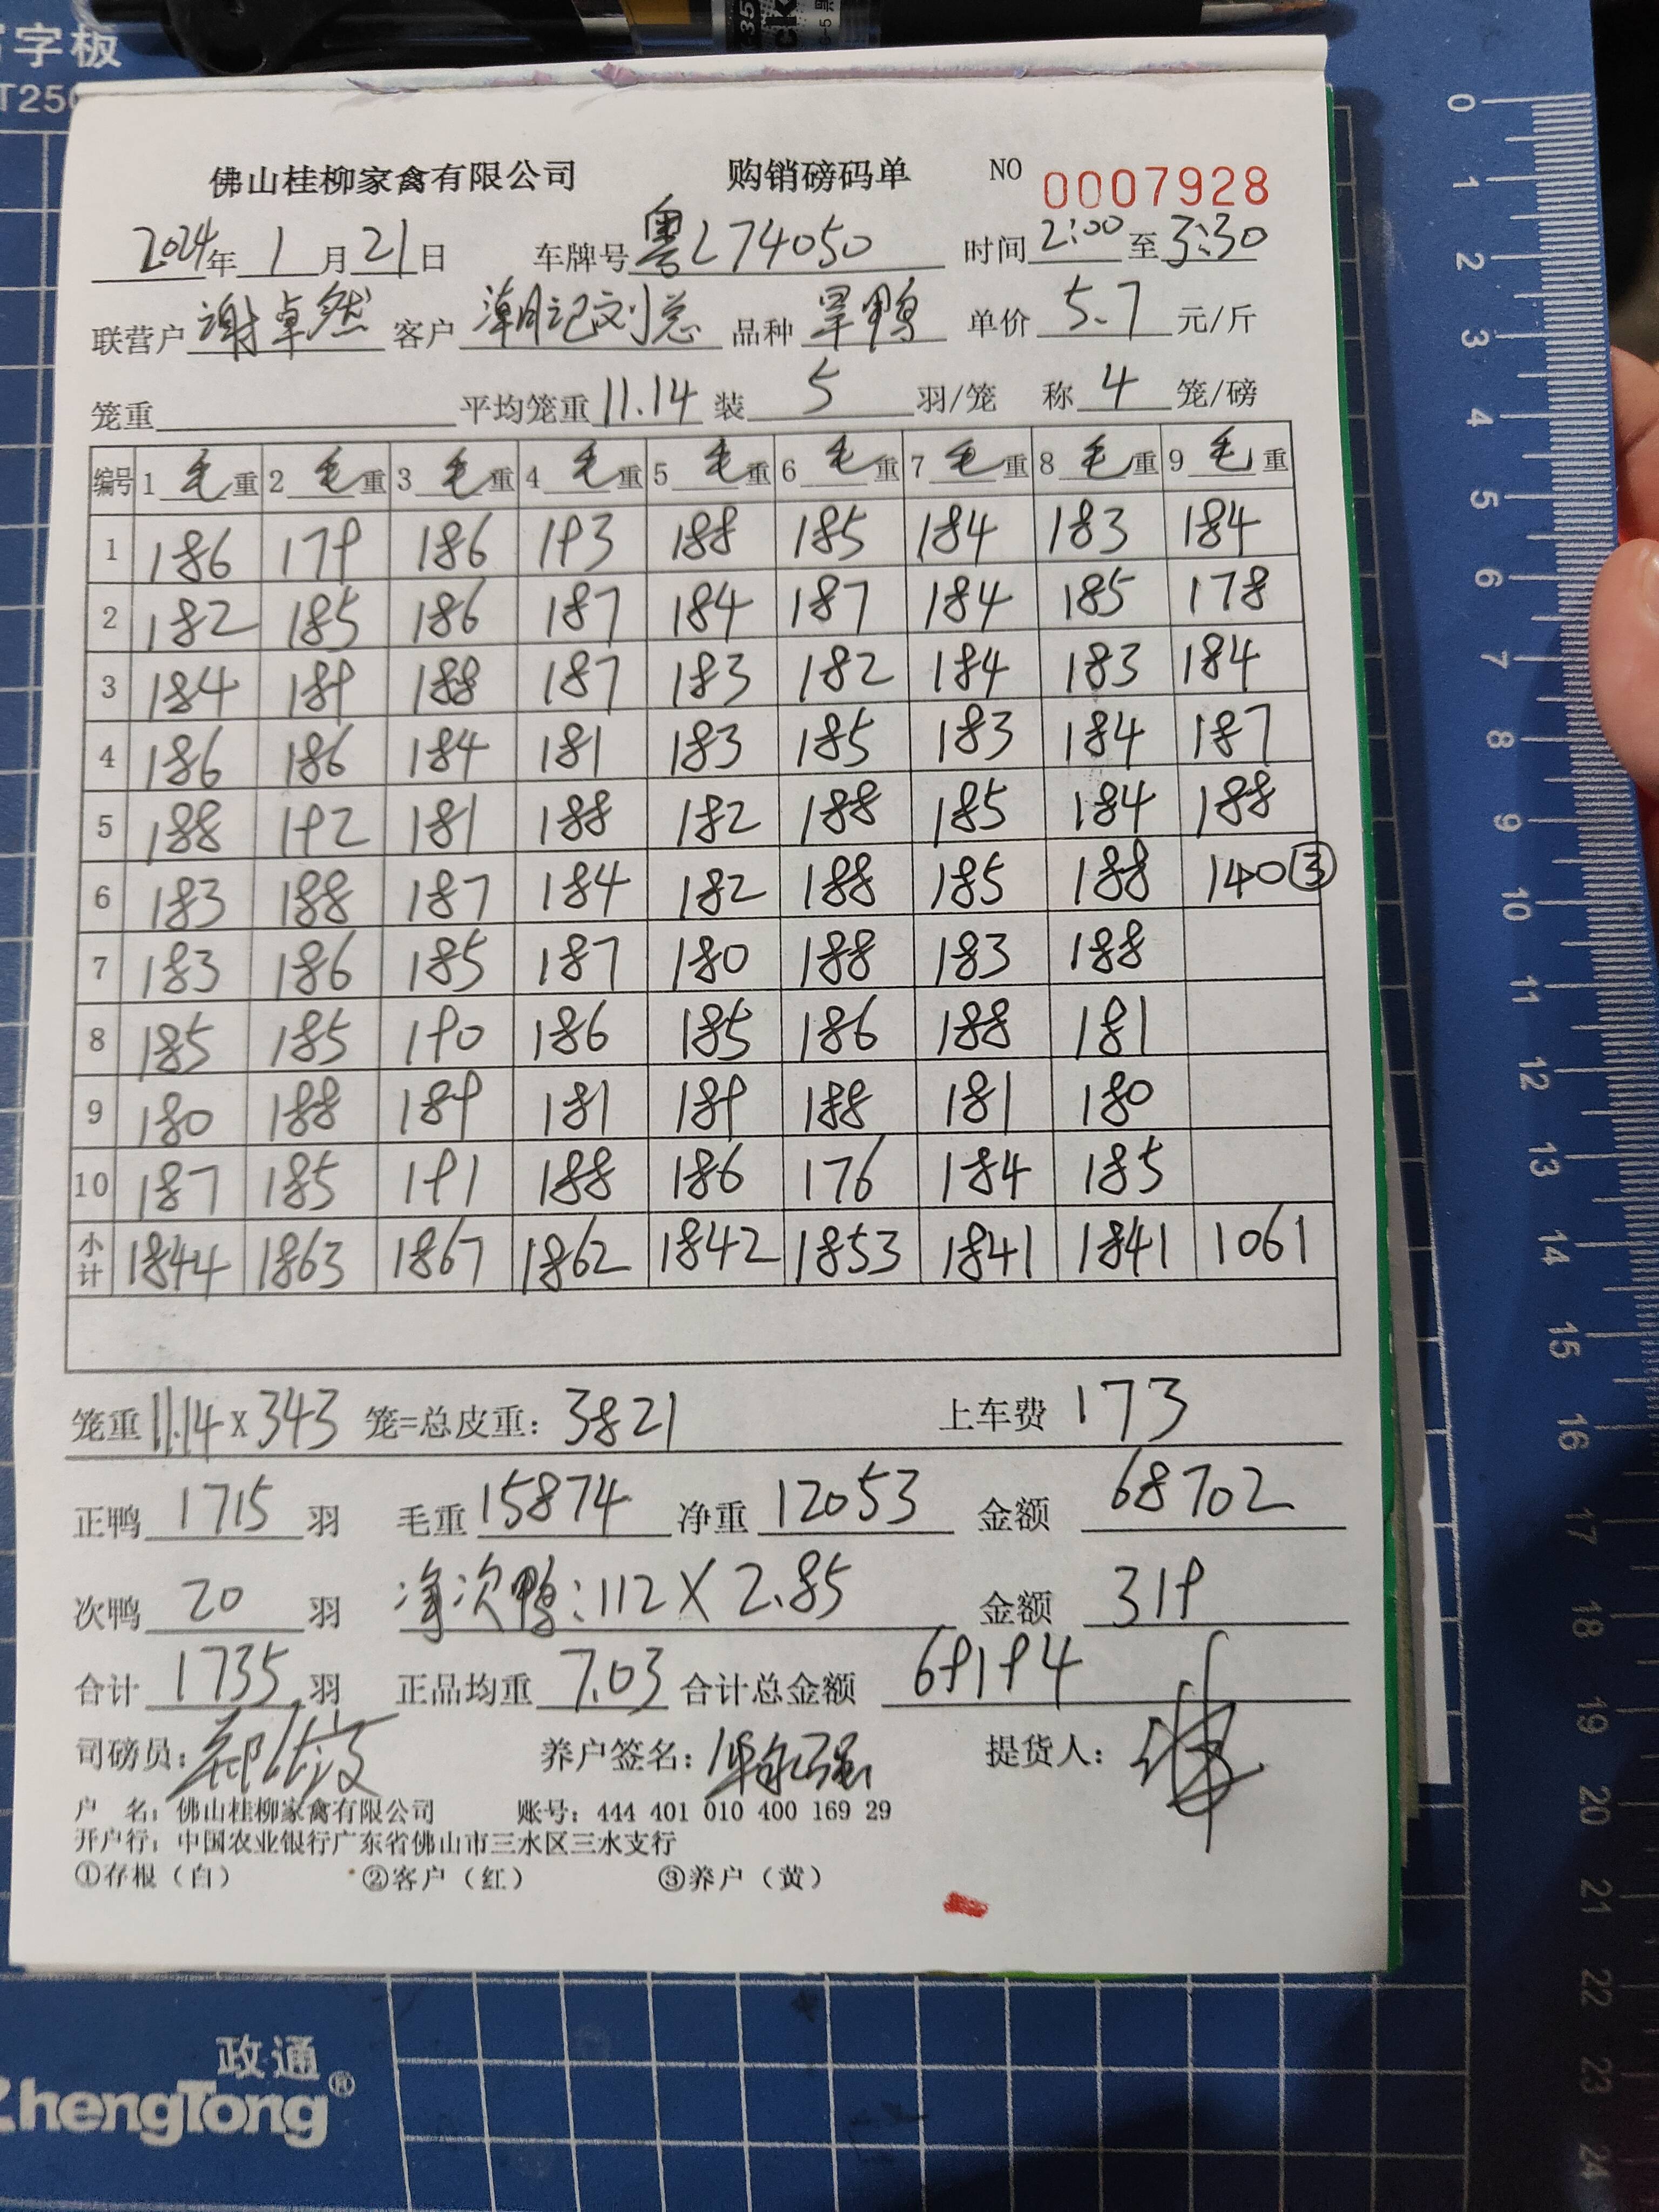 写字板
T250
佛山桂柳家禽有限公司 购销磅码单 NO 0007928
2024年 1 月 21 日 车牌号 粤L74050 时间 2:00 至 3:30
联营户 谢卓然 客户 潮记刘总 品种 旱鸭 单价 5.7 元/斤
笼重 平均笼重 11.14 装 5 羽/笼 称 4 笼/磅
编号 1 毛 重 2 毛 重 3 毛 重 4 毛 重 5 毛 重 6 毛 重 7 毛 重 8 毛 重 9 毛 重
1 186 179 186 193 188 185 184 183 184
2 182 185 186 187 184 187 184 185 178
3 184 189 188 187 183 182 184 183 184
4 186 186 184 181 183 185 183 184 187
5 188 192 181 188 182 188 185 184 188
6 183 188 187 184 182 188 185 188 140③
7 183 186 185 187 180 188 183 188
8 185 185 190 186 185 186 188 181
9 180 188 189 181 189 188 181 180
10 187 185 191 188 186 176 184 185
小计 1844 1863 1867 1862 1842 1853 1841 1841 1061
笼重 11.14 X 343 笼=总皮重: 3821 上车费 173
正鸭 1715 羽 毛重 15874 净重 12053 金额 68702
次鸭 20 羽 净次鸭:112 X 2.85 金额 319
合计 1735 羽 正品均重 7.03 合计总金额 69194
司磅员: 养户签名: 提货人:
户 名: 佛山桂柳家禽有限公司 账号: 444 401 010 400 169 29
开户行: 中国农业银行广东省佛山市三水区三水支行
①存根（白） ②客户（红） ③养户（黄）
政通
ZhengTong®
0 1 2 3 4 5 6 7 8 9 10 11 12 13 14 15 16 17 18 19 20 21 22 23 24